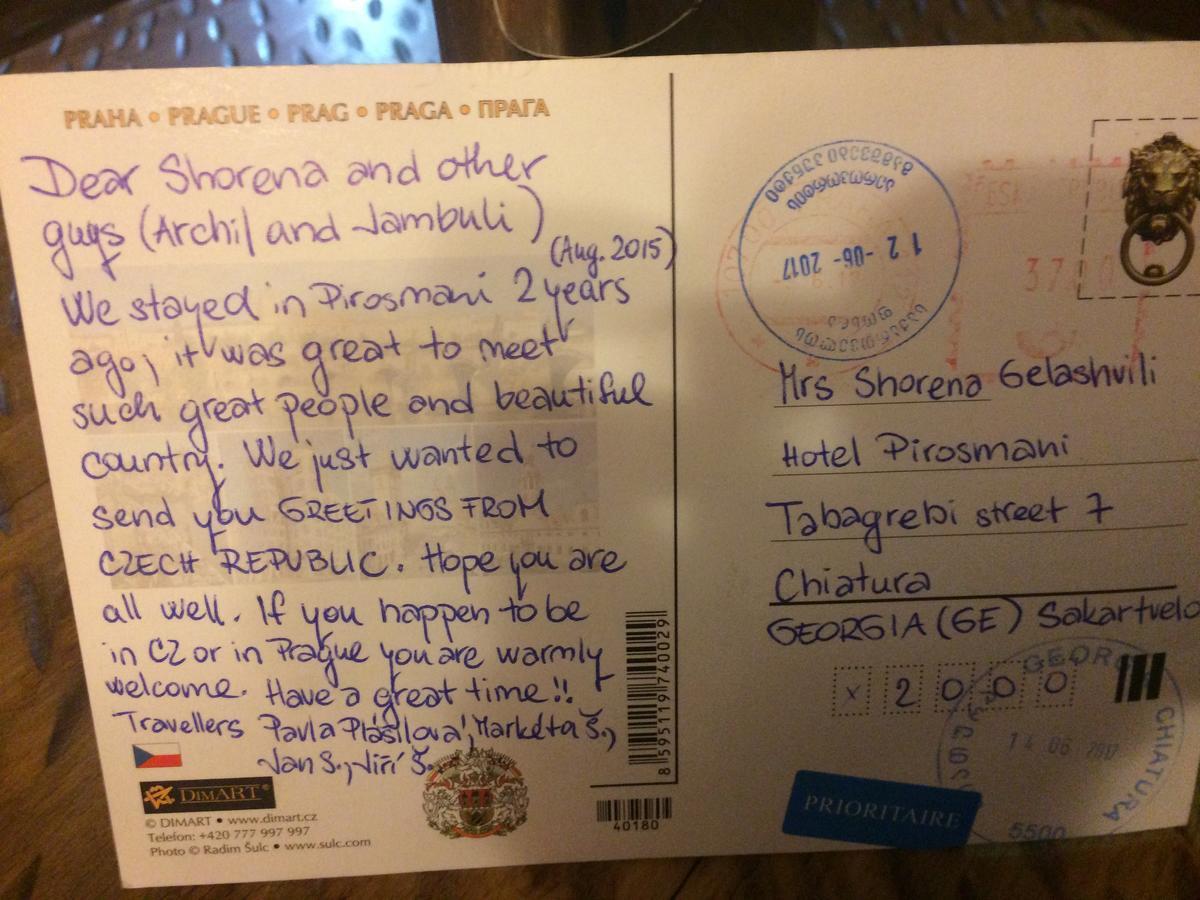 PRAHA • PRAGUE • PRAG • PRAGA • ПРАГА
Dear Shorena and other
guys (Archil and Jambuli)
(Aug. 2015)
We stayed in Pirosmani 2 years
ago, it was great to meet
such great people and beautiful
country. We just wanted to
send you GREETINGS FROM
CZECH REPUBLIC. Hope you are
all well. If you happen to be
in CZ or in Prague you are warmly
welcome. Have a great time!!
Travellers Pavla Plášilová, Markéta Š.,
Jan S., Jiří Š.
DIMART
© DIMART • www.dimart.cz
Telefon: +420 777 997 997
Photo © Radim Šulc • www.sulc.com
8 595119 740029
40180
12 -06- 2017
Mrs Shorena Gelashvili
Hotel Pirosmani
Tabagrebi street 7
Chiatura
GEORGIA (GE) Sakartvelo
x 2 0 0 0
GEOR
CHIATURA
14 06 2017
5500
PRIORITAIRE